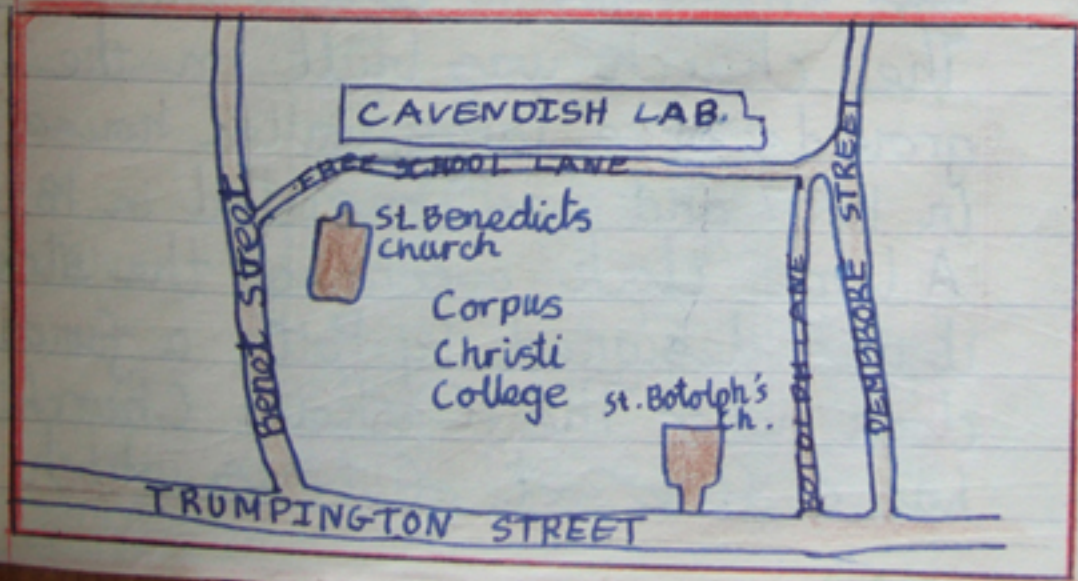 CAVENDISH LAB.
FREE SCHOOL LANE
St. Benedicts
Church
Corpus
Christi
College
St. Botolph's
Ch.
Benet Street
BOTOLPH LANE
PEMBROKE STREET
TRUMPINGTON STREET